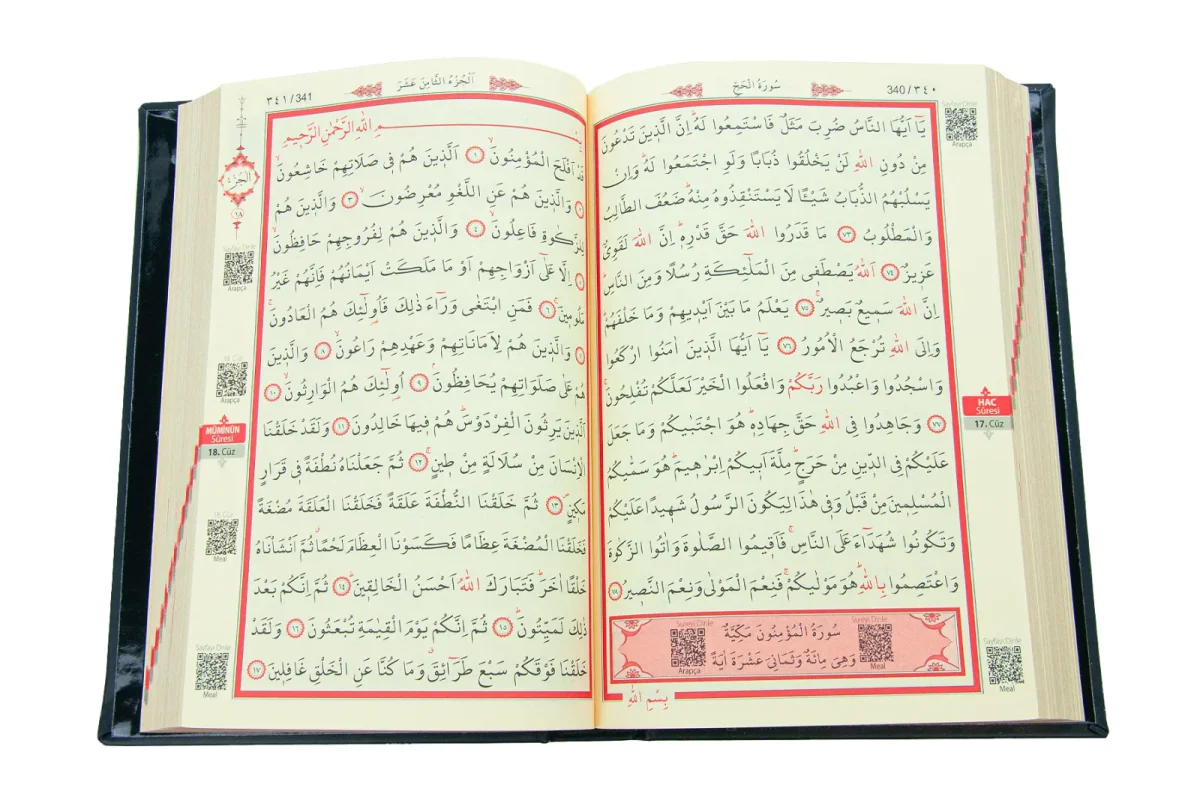 سُورَةُ الْحَجّ
340/٣٤٠
يَٓا اَيُّهَا النَّاسُ ضُرِبَ مَثَلٌ فَاسْتَمِعُوا لَهُۜ اِنَّ الَّذٖينَ تَدْعُونَ
مِنْ دُونِ اللّٰهِ لَنْ يَخْلُقُوا ذُبَابًا وَلَوِ اجْتَمَعُوا لَهُۜ وَاِنْ
يَسْلُبْهُمُ الذُّبَابُ شَيْـًٔا لَا يَسْتَنْقِذُوهُ مِنْهُۜ ضَعُفَ الطَّالِبُ
وَالْمَطْلُوبُ ٧٣ مَا قَدَرُوا اللّٰهَ حَقَّ قَدْرِهٖۜ اِنَّ اللّٰهَ لَقَوِىٌّ
عَزٖيزٌ ٧٤ اَللّٰهُ يَصْطَفٖى مِنَ الْمَلٰٓئِكَةِ رُسُلًا وَمِنَ النَّاسِۜ
اِنَّ اللّٰهَ سَمٖيعٌ بَصٖيرٌۚ ٧٥ يَعْلَمُ مَا بَيْنَ اَيْدٖيهِمْ وَمَا خَلْفَهُمْۜ
وَاِلَى اللّٰهِ تُرْجَعُ الْاُمُورُ ٧٦ يَٓا اَيُّهَا الَّذٖينَ اٰمَنُوا ارْكَعُوا
وَاسْجُدُوا وَاعْبُدُوا رَبَّكُمْ وَافْعَلُوا الْخَيْرَ لَعَلَّكُمْ تُفْلِحُونَۚ
٧٧ وَجَاهِدُوا فِى اللّٰهِ حَقَّ جِهَادِهٖۜ هُوَ اجْتَبٰيكُمْ وَمَا جَعَلَ
عَلَيْكُمْ فِى الدّٖينِ مِنْ حَرَجٍۜ مِلَّةَ اَبٖيكُمْ اِبْرٰهٖيمَۜ هُوَ سَمّٰيكُمُ
الْمُسْلِمٖينَ مِنْ قَبْلُ وَفٖى هٰذَا لِيَكُونَ الرَّسُولُ شَهٖيدًا عَلَيْكُمْ
وَتَكُونُوا شُهَدَٓاءَ عَلَى النَّاسِۚ فَاَقٖيمُوا الصَّلٰوةَ وَاٰتُوا الزَّكٰوةَ
وَاعْتَصِمُوا بِاللّٰهِۜ هُوَ مَوْلٰيكُمْۚ فَنِعْمَ الْمَوْلٰى وَنِعْمَ النَّصٖيرُ ٧٨
سُورَةُ الْمُؤْمِنُونَ مَكِّيَّةٌ
وَهِىَ مِائَةٌ وَثَمَانِىَ عَشْرَةَ اٰيَةً
Sureyi Dinle
Arapça
Sureyi Dinle
Meal
بِسْمِ اللّٰهِ
Sayfayı Dinle
Arapça
HAC
Sûresi
17. Cüz
Sayfayı Dinle
Meal
اَلْجُزْءُ الثَّامِنَ عَشَرَ
٣٤١/341
بِسْمِ اللّٰهِ الرَّحْمٰنِ الرَّحٖيمِ
قَدْ اَفْلَحَ الْمُؤْمِنُونَۙ ١ اَلَّذٖينَ هُمْ فٖى صَلَاتِهِمْ خَاشِعُونَۙ
٢ وَالَّذٖينَ هُمْ عَنِ اللَّغْوِ مُعْرِضُونَۙ ٣ وَالَّذٖينَ هُمْ
لِلزَّكٰوةِ فَاعِلُونَۙ ٤ وَالَّذٖينَ هُمْ لِفُرُوجِهِمْ حَافِظُونَۙ
٥ اِلَّا عَلٰٓى اَزْوَاجِهِمْ اَوْ مَا مَلَكَتْ اَيْمَانُهُمْ فَاِنَّهُمْ غَيْرُ
مَلُومٖينَۚ ٦ فَمَنِ ابْتَغٰى وَرَٓاءَ ذٰلِكَ فَاُو۬لٰٓئِكَ هُمُ الْعَادُونَۚ
٧ وَالَّذٖينَ هُمْ لِاَمَانَاتِهِمْ وَعَهْدِهِمْ رَاعُونَۙ ٨ وَالَّذٖينَ
هُمْ عَلٰى صَلَوَاتِهِمْ يُحَافِظُونَۘ ٩ اُو۬لٰٓئِكَ هُمُ الْوَارِثُونَۙ ١٠
اَلَّذٖينَ يَرِثُونَ الْفِرْدَوْسَۜ هُمْ فٖيهَا خَالِدُونَ ١١ وَلَقَدْ خَلَقْنَا
الْاِنْسَانَ مِنْ سُلَالَةٍ مِنْ طٖينٍۚ ١٢ ثُمَّ جَعَلْنَاهُ نُطْفَةً فٖى قَرَارٍ
مَكٖينٍۖ ١٣ ثُمَّ خَلَقْنَا النُّطْفَةَ عَلَقَةً فَخَلَقْنَا الْعَلَقَةَ مُضْغَةً
فَخَلَقْنَا الْمُضْغَةَ عِظَامًا فَكَسَوْنَا الْعِظَامَ لَحْمًاۗ ثُمَّ اَنْشَاْنَاهُ
خَلْقًا اٰخَرَۜ فَتَبَارَكَ اللّٰهُ اَحْسَنُ الْخَالِقٖينَۜ ١٤ ثُمَّ اِنَّكُمْ بَعْدَ
ذٰلِكَ لَمَيِّتُونَۜ ١٥ ثُمَّ اِنَّكُمْ يَوْمَ الْقِيٰمَةِ تُبْعَثُونَ ١٦ وَلَقَدْ
خَلَقْنَا فَوْقَكُمْ سَبْعَ طَرَٓائِقَۗ وَمَا كُنَّا عَنِ الْخَلْقِ غَافِلٖينَ ١٧
اَلْجُزْءُ
١٨
Sayfayı Dinle
Arapça
18. Cüz
Arapça
MÜMİNÛN
Sûresi
18. Cüz
18. Cüz
Meal
Sayfayı Dinle
Meal